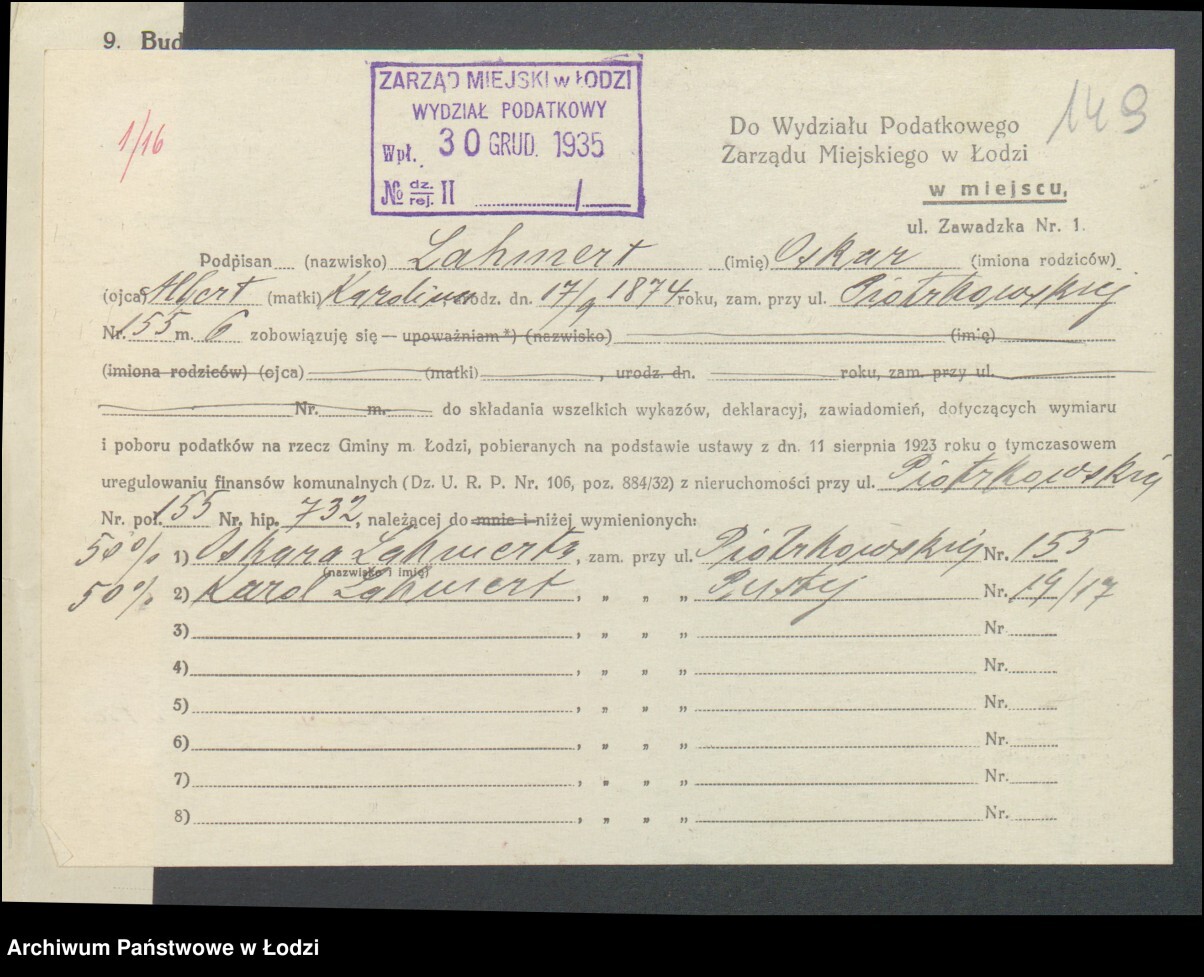 9. Bud
ZARZĄD MIEJSKI w ŁODZI
WYDZIAŁ PODATKOWY
Wpł. 30 GRUD. 1935
№ dz./rej. II /
1/16
149
Do Wydziału Podatkowego
Zarządu Miejskiego w Łodzi
w miejscu,
ul. Zawadzka Nr. 1.
Podpisan (nazwisko) Lahmert (imię) Oskar (imiona rodziców)
(ojca) Albert (matki) Karolina urodz. dn. 17/9 1874 roku, zam. przy ul. Piotrkowskiej
Nr. 155 m. 6 zobowiązuję się — upoważniam *) (nazwisko) (imię)
(imiona rodziców) (ojca) (matki) , urodz. dn. roku, zam. przy ul.
Nr. m. do składania wszelkich wykazów, deklaracyj, zawiadomień, dotyczących wymiaru
i poboru podatków na rzecz Gminy m. Łodzi, pobieranych na podstawie ustawy z dn. 11 sierpnia 1923 roku o tymczasowem
uregulowaniu finansów komunalnych (Dz. U. R. P. Nr. 106, poz. 884/32) z nieruchomości przy ul. Piotrkowskiej
Nr. pol. 155 Nr. hip. 732, należącej do mnie i niżej wymienionych:
50% 1) Oskara Lahmerta, zam. przy ul. Piotrkowskiej Nr. 155
(nazwisko i imię)
50% 2) Karol Lahmert, „ „ „ Pustej Nr. 19/17
3) , „ „ „ Nr.
4) , „ „ „ Nr.
5) , „ „ „ Nr.
6) , „ „ „ Nr.
7) , „ „ „ Nr.
8) , „ „ „ Nr.
Archiwum Państwowe w Łodzi